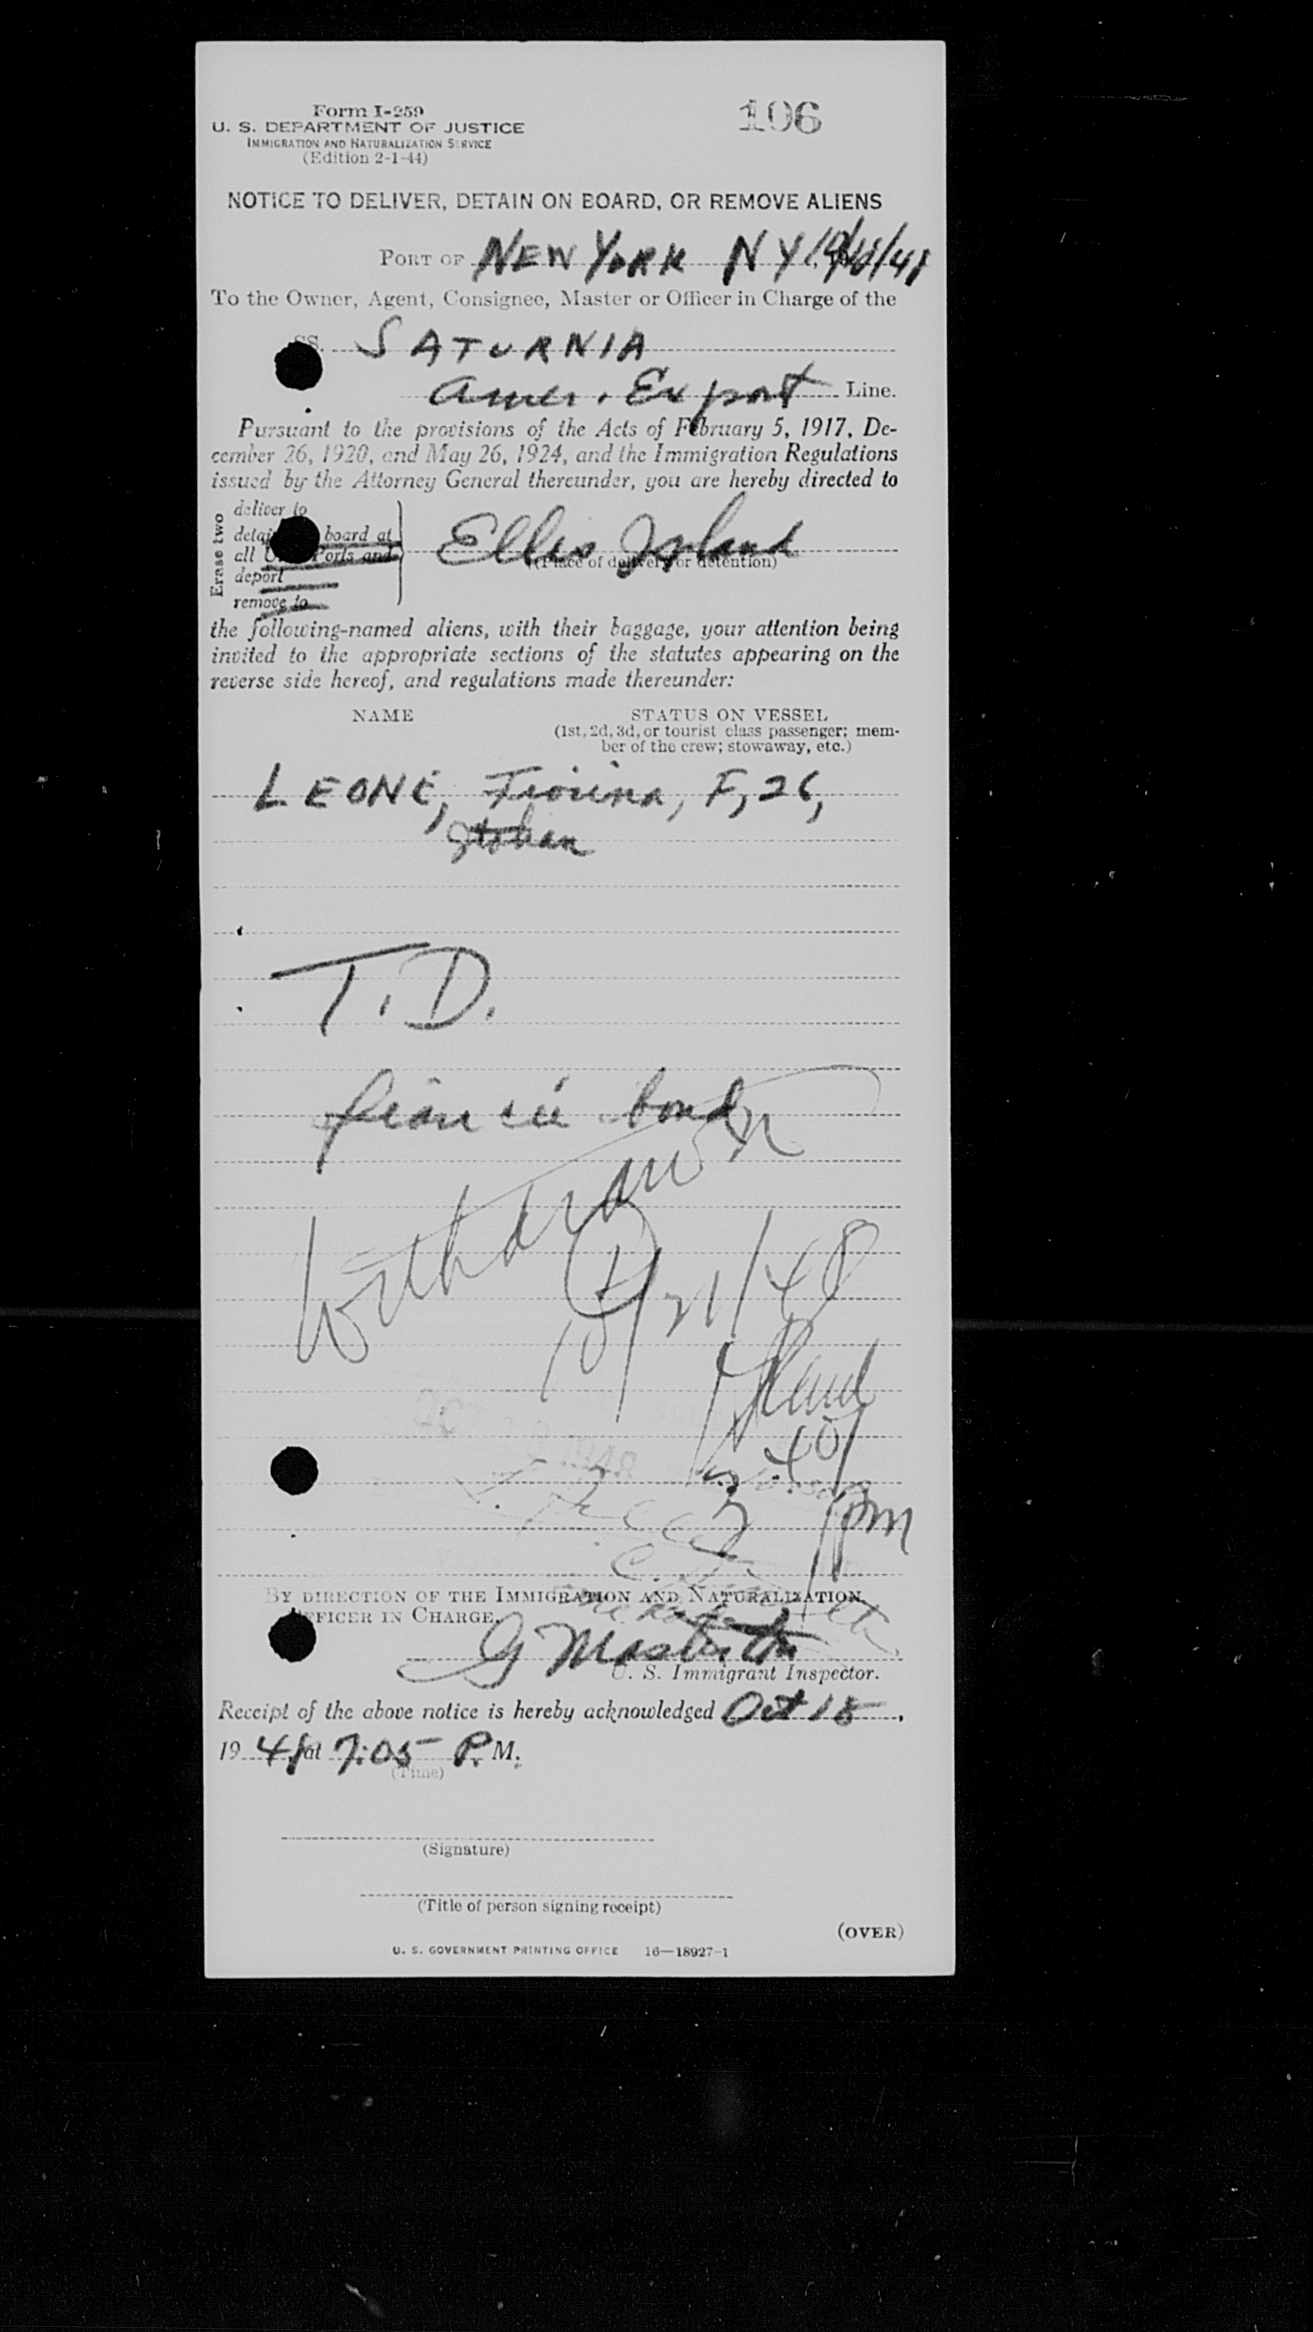 Form I-259
106
U. S. DEPARTMENT OF JUSTICE
IMMIGRATION AND NATURALIZATION SERVICE
(Edition 2-1-44)
NOTICE TO DELIVER, DETAIN ON BOARD, OR REMOVE ALIENS
PORT OF NEW YORK NY
To the Owner, Agent, Consignee, Master or Officer in Charge of the
SS. SATURNIA
Amer. Export Line.
Pursuant to the provisions of the Acts of February 5, 1917, De-
cember 26, 1920, and May 26, 1924, and the Immigration Regulations
issued by the Attorney General thereunder, you are hereby directed to
Erase two
deliver to
board at
all Ports and
deport
remove to
Ellis Island
(Place of delivery or detention)
the following-named aliens, with their baggage, your attention being
invited to the appropriate sections of the statutes appearing on the
reverse side hereof, and regulations made thereunder:
NAME STATUS ON VESSEL
(1st, 2d, 3d, or tourist class passenger; mem-
ber of the crew; stowaway, etc.)
LEONE, Fiorina, F, 26,
Italian
T. D.
fiancée bond
Withdrawn
10/21/48
OCT 1948
pm
BY DIRECTION OF THE IMMIGRATION AND NATURALIZATION
OFFICER IN CHARGE.
U. S. Immigrant Inspector.
Receipt of the above notice is hereby acknowledged Oct 18,
1948 at 7:05 P. M.
(Time)
(Signature)
(Title of person signing receipt)
(OVER)
U. S. GOVERNMENT PRINTING OFFICE 16—18927-1